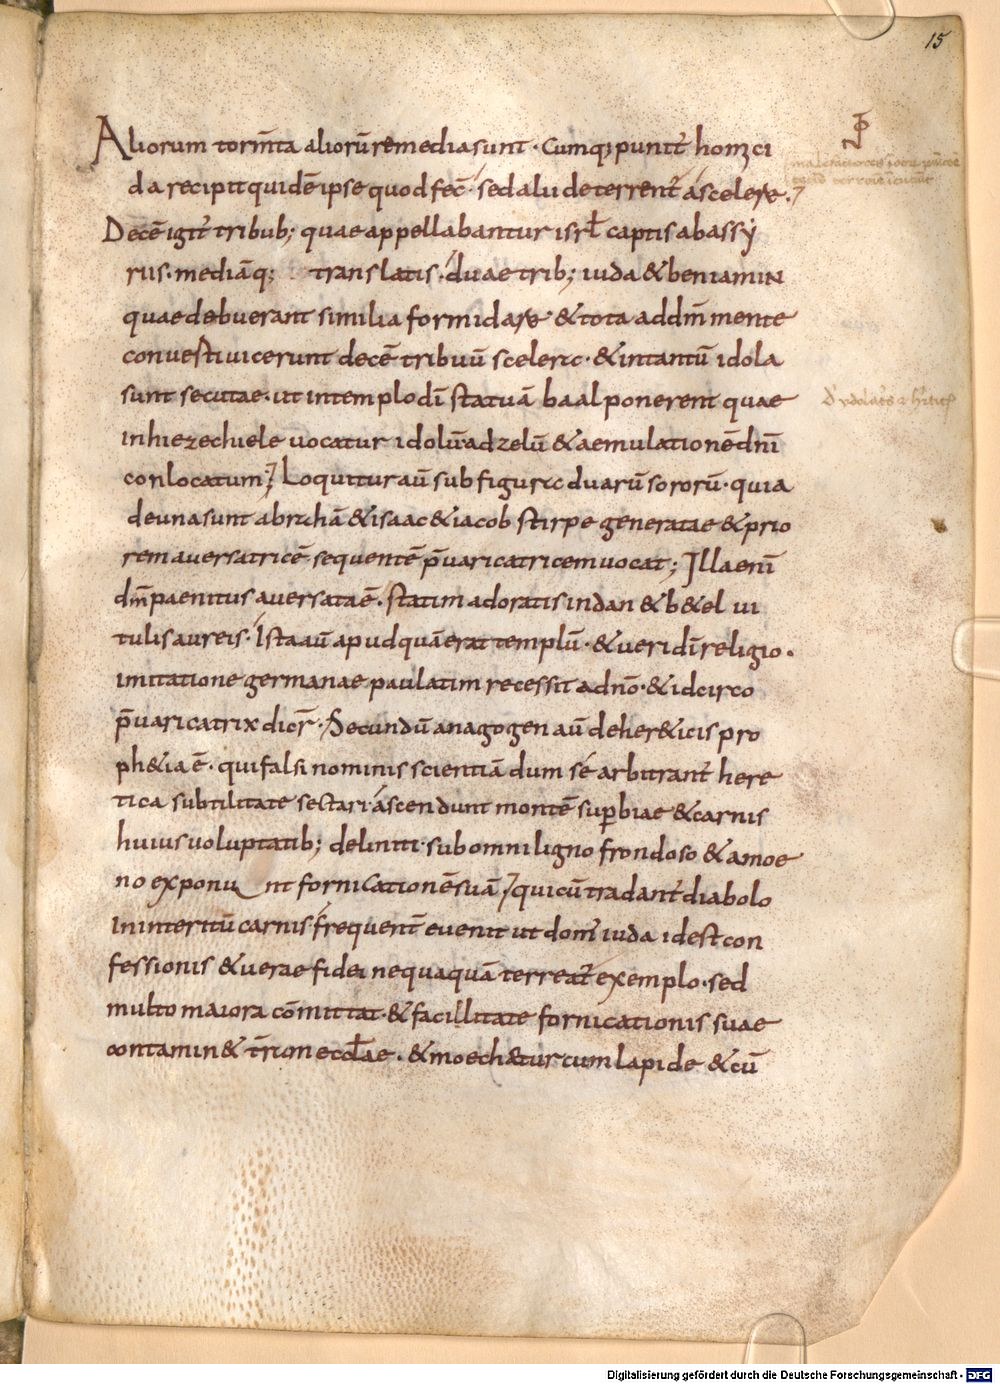 15
Aliorum torm̄ta aliorū remedia sunt · Cumq; punit̄ homici
da recipit quidē ipse quod fec̄ · sed alii deterrent̄ a scelere ·
Decē igit̄ tribub; quae appellabantur isrl̄ captis ab assy
riis · mediāq; translatis · duae trib; iuda & beniamin
quae debuerant similia formidare · & tota ad dm̄ mente
converti vicerunt decē tribuū scelera · & in tantū idola
sunt secutae · ut in templo dī statuā baal ponerent quae
in hiezechiele vocatur idolū ad zelū & aemulationē dn̄i
conlocatum ; Loquitur aū sub figura duarū sororū · quia
de una sunt abrahā & isaac & iacob stirpe generatae & prio
rem aversatricē sequentē p̄varicatricem vocat ; Illa enī
dm̄ paenitus aversata ē · statim adoratis in dan & b&el vi
tulis aureis · Ista aū apud quā erat templū · & veri dī religio ·
imitatione germanae paulatim recessit a dn̄o · & idcirco
p̄varicatrix dicr̄ · Secundū anagogen aū de her&icis pro
ph&ia ē · qui falsi nominis scientiā dum sé arbitrant̄ here
tica subtilitate sectari · ascendunt montē supbiae & carnis
huius voluptatib; deliniti · sub omni ligno frondoso & amoe
no exponunt fornicationē suā · qui cū tradant̄ diabolo
in interitū carnis · frequent̄ evenit ut dom̄ iuda id est con
fessionis & verae fidei nequaquā terreat̄ exemplo · sed
multo maiora cōmittat · & facilitate fornicationis suae
contamin& t̄ram eccl̄ae · & moech&ur cum lapide & cū
Digitalisierung gefördert durch die Deutsche Forschungsgemeinschaft - DFG